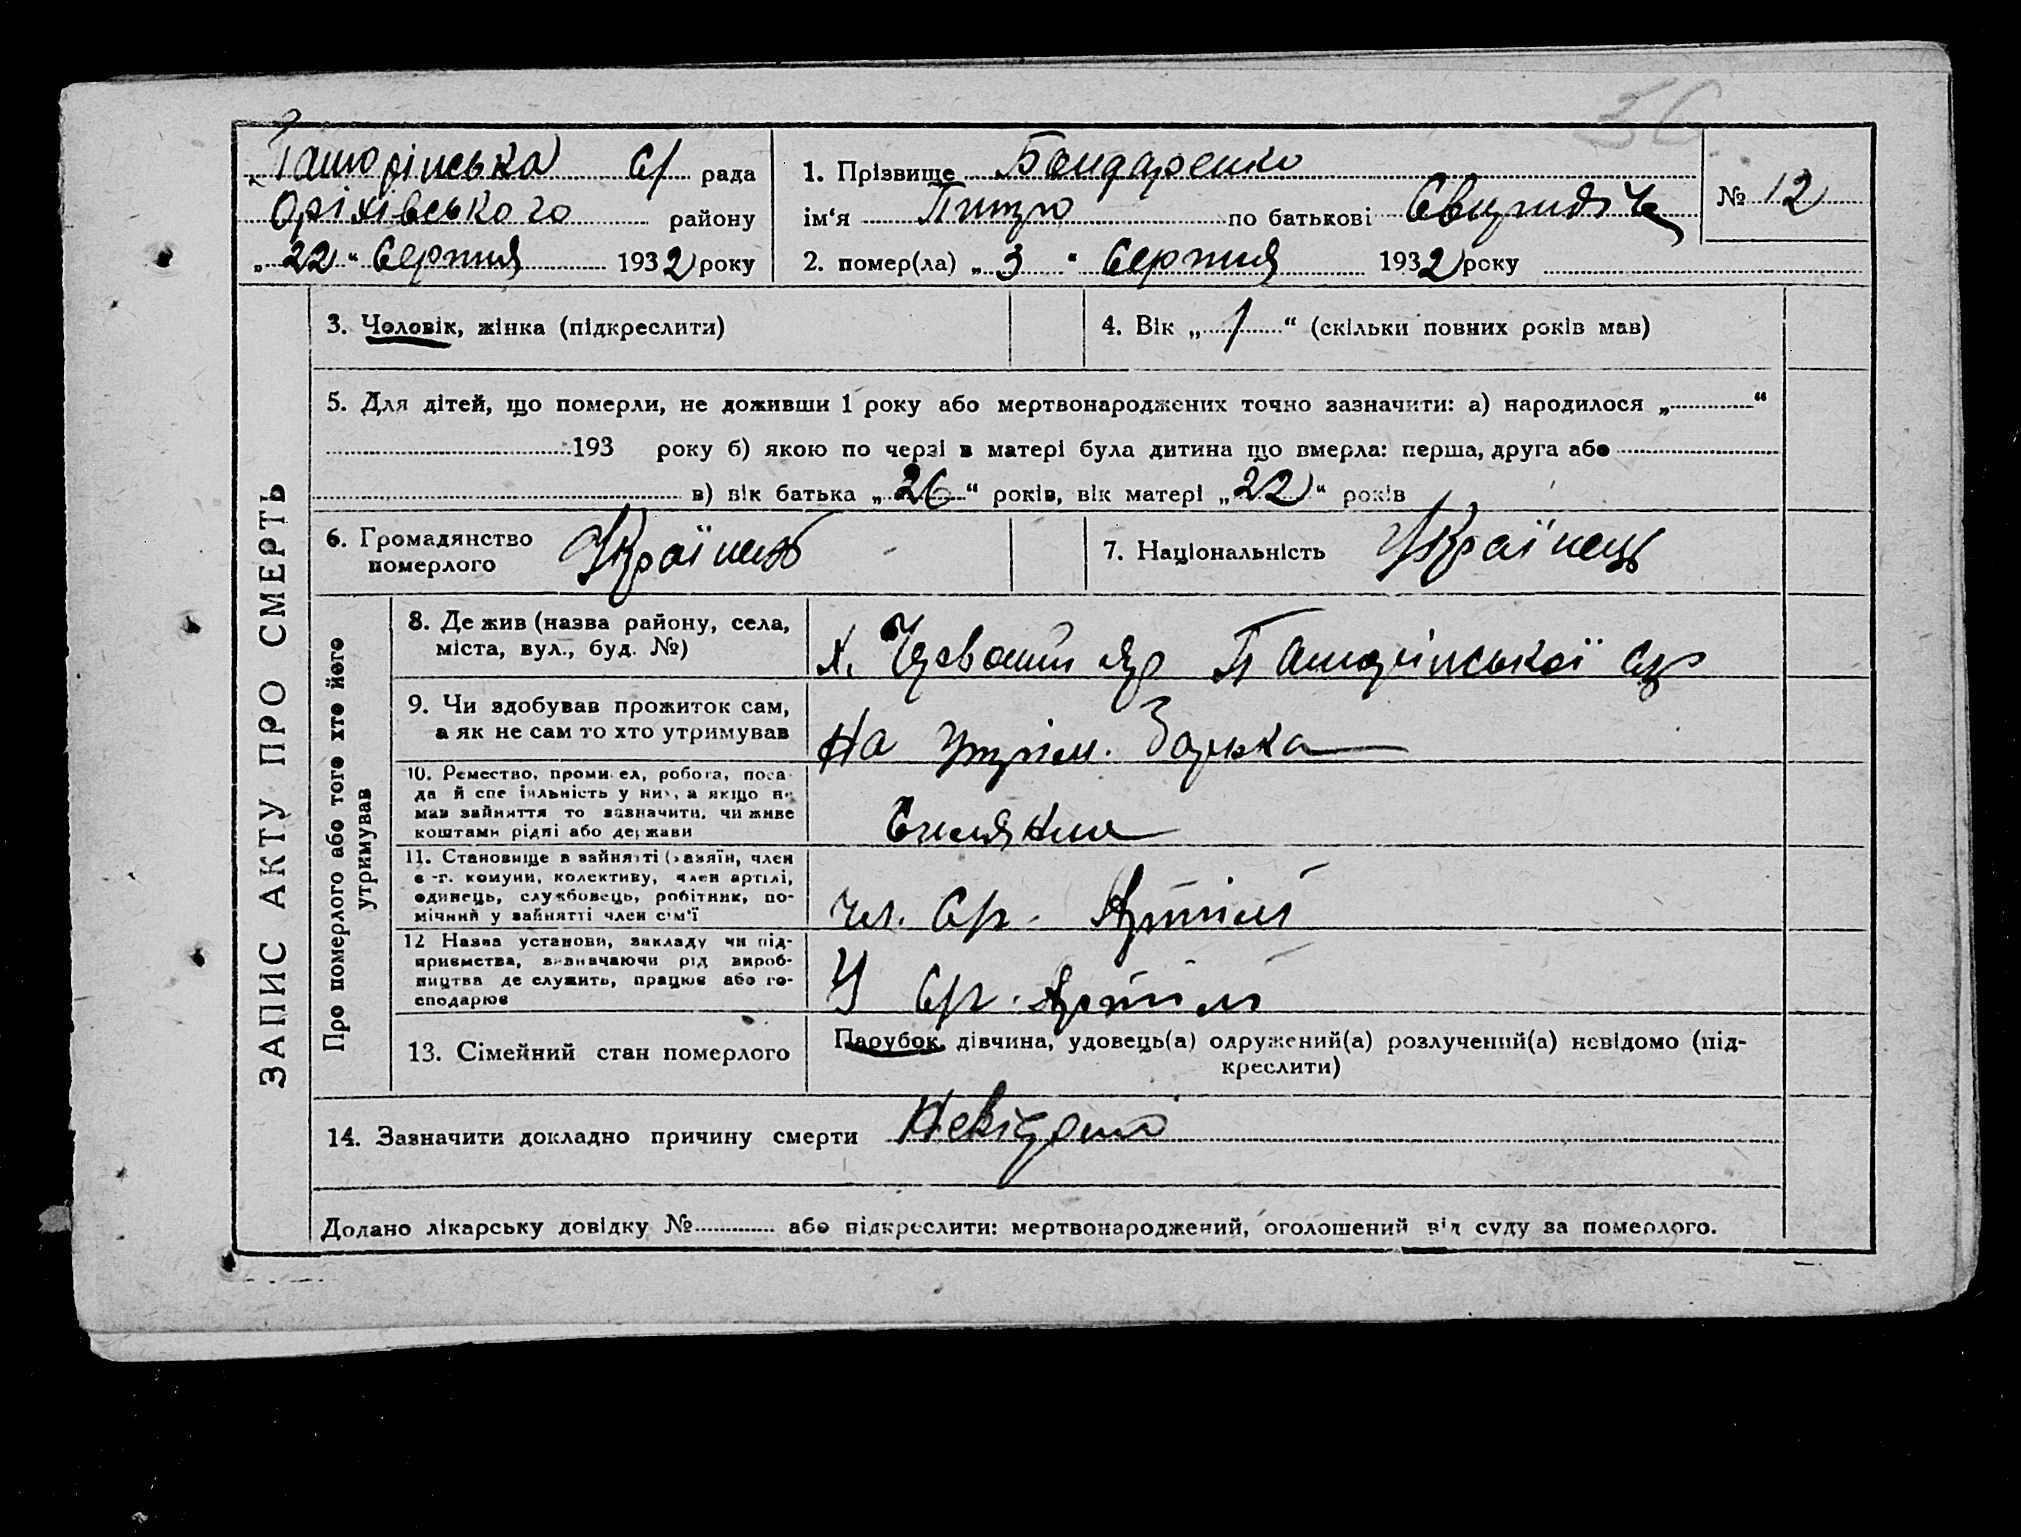 с/ рада
Оріхівського району
„22“ Серпня 1932 року
1. Прізвище Бондаренко
ім‘я Питро по батькові
№ 12
2. помер(ла) „3“ Серпня 1932 року
ЗАПИС АКТУ ПРО СМЕРТЬ
3. Чоловік, жінка (підкреслити)
4. Вік „1“ (скільки повних років мав)
5. Для дітей, що померли, не доживши 1 року або мертвонароджених точно зазначити: а) народилося „ “
193 року б) якою по черзі в матері була дитина що вмерла: перша, друга або
в) вік батька „26“ років, вік матері „22“ років
6. Громадянство
померлого
Українець
7. Національність Українець
Про померлого або того хто його
утримував
8. Де жив (назва району, села,
міста, вул., буд. №)
х. яр
9. Чи здобував прожиток сам,
а як не сам то хто утримував
На утрим. Батька
10. Ремество, промисел, робота, поса-
да й спеціяльність у них, а якщо не
мав зайняття то зазначити, чи живе
коштами рідні або держави
11. Становище в зайнятті (хазяїн, член
с.-г. комуни, колективу, член артілі,
одинець, службовець, робітник, по-
мічний у зайнятті член сім'ї
чл. Ср. Артілі
12 Назва установи, закладу чи під-
приємства, визначаючи рід вироб-
ництва де служить, працює або го-
сподарює
У Ср. Артілі
13. Сімейний стан померлого
Парубок, дівчина, удовець(а) одружений(а) розлучений(а) невідомо (під-
креслити)
14. Зазначити докладно причину смерти Невідомо
Додано лікарську довідку № або підкреслити: мертвонароджений, оголошений від суду за померлого.